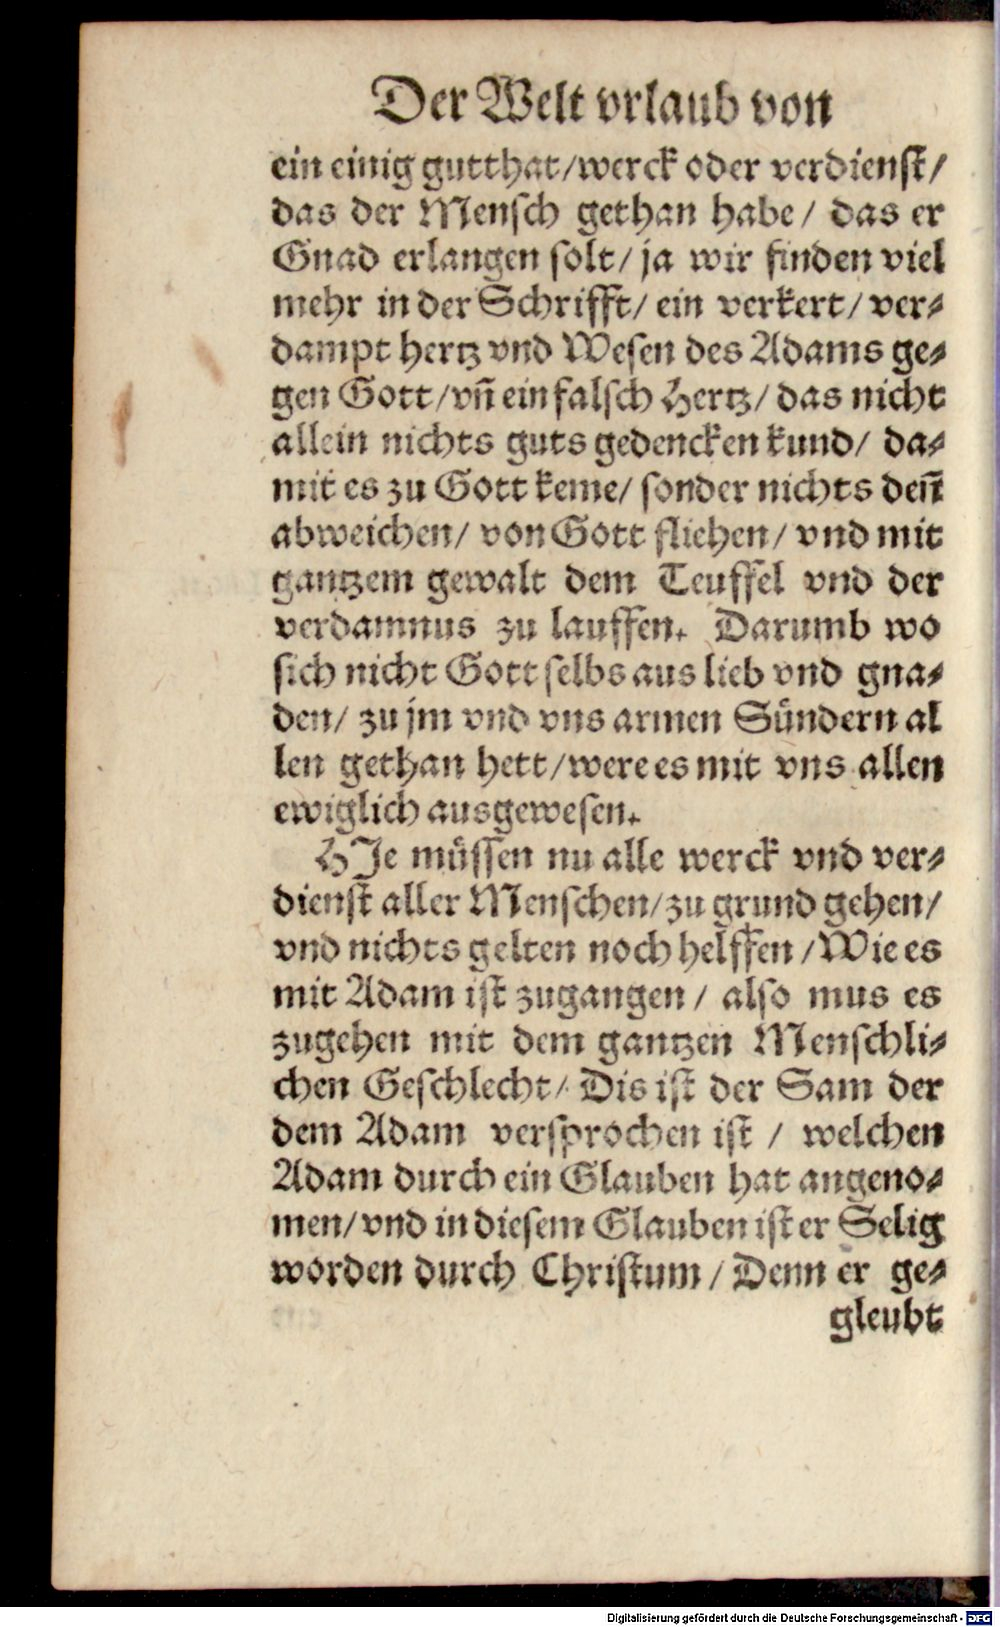 Der Welt vrlaub von
ein einig gutthat/werck oder verdienst/
das der Mensch gethan habe/ das er
Gnad erlangen solt/ ja wir finden viel
mehr in der Schrifft/ ein verkert/ ver⸗
dampt hertz vnd Wesen des Adams ge⸗
gen Gott/vñ ein falsch Hertz/ das nicht
allein nichts guts gedencken kund/ da⸗
mit es zu Gott keme/ sonder nichts deñ
abweichen/ von Gott fliehen/ vnd mit
gantzem gewalt dem Teuffel vnd der
verdamnus zu lauffen. Darumb wo
sich nicht Gott selbs aus lieb vnd gna⸗
den/ zu jm vnd vns armen Sündern al
len gethan hett/were es mit vns allen
ewiglich ausgewesen.
HJe müssen nu alle werck vnd ver⸗
dienst aller Menschen/zu grund gehen/
vnd nichts gelten noch helffen/Wie es
mit Adam ist zugangen/ also mus es
zugehen mit dem gantzen Menschli⸗
chen Geschlecht/ Dis ist der Sam der
dem Adam versprochen ist / welchen
Adam durch ein Glauben hat angeno⸗
men/vnd in diesem Glauben ist er Selig
worden durch Christum/ Denn er ge⸗
gleubt
Digitalisierung gefördert durch die Deutsche Forschungsgemeinschaft - DFG